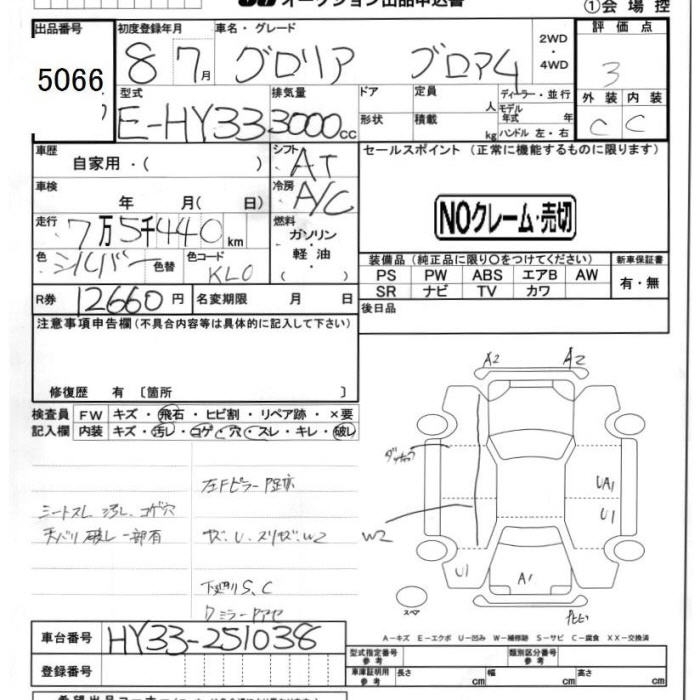 オークション出品申込書 ①会場控
出品番号 5066
初度登録年月 8 7月
車名・グレード グロリア グロア4
2WD・4WD
評価点 3
外装 内装
C C
型式 E-HY33
排気量 3000cc
ドア 定員 人
形状 積載 kg
ディーラー・並行
モデル年式 年式
ハンドル 左・右
車歴 自家用・( )
シフト AT
セールスポイント (正常に機能するものに限ります)
車検 年 月( 日)
冷房 A/C
NOクレーム・売切
走行 7万5千440km
燃料 ガソリン・軽油 ( )
色 シルバー 色替
色コード KL0
装備品 (純正品に限り○をつけてください)
新車保証書
PS PW ABS エアB AW
SR ナビ TV カワ
有・無
R券 12660円 名変期限 月 日
後日品
注意事項申告欄(不具合内容等は具体的に記入して下さい)
修復歴 有 〔箇所 〕
検査員 FW キズ・飛石・ヒビ割・リペア跡・×要
記入欄 内装 キズ・汚レ・コゲ・穴・スレ・キレ・破レ
A2 A2
左Fピラー
シートスレ 汚レ、コゲ穴
天バリ破レ一部有
キズ、U、スリキズ、W2
W2
UA1
U1
U1
A1
下廻りS、C
スペア
A-キズ E-エクボ U-凹み W-補修跡 S-サビ C-腐食 XX-交換済
車台番号 HY33-251038
型式指定番号 参考
類別区分番号 参考
登録番号
車庫証明用 参考 長さ cm 幅 cm 高さ cm
希望出品コーナー